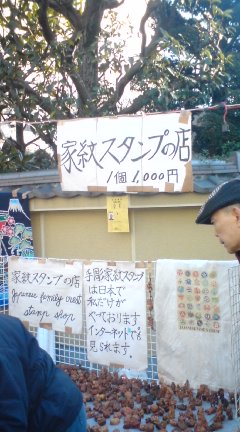 家紋スタンプの店
1個 1,000円
家紋スタンプの店
Japanese family crest
stamp shop
手彫家紋スタンプ
は日本で
私だけが
やっております
インターネットでも
見られます